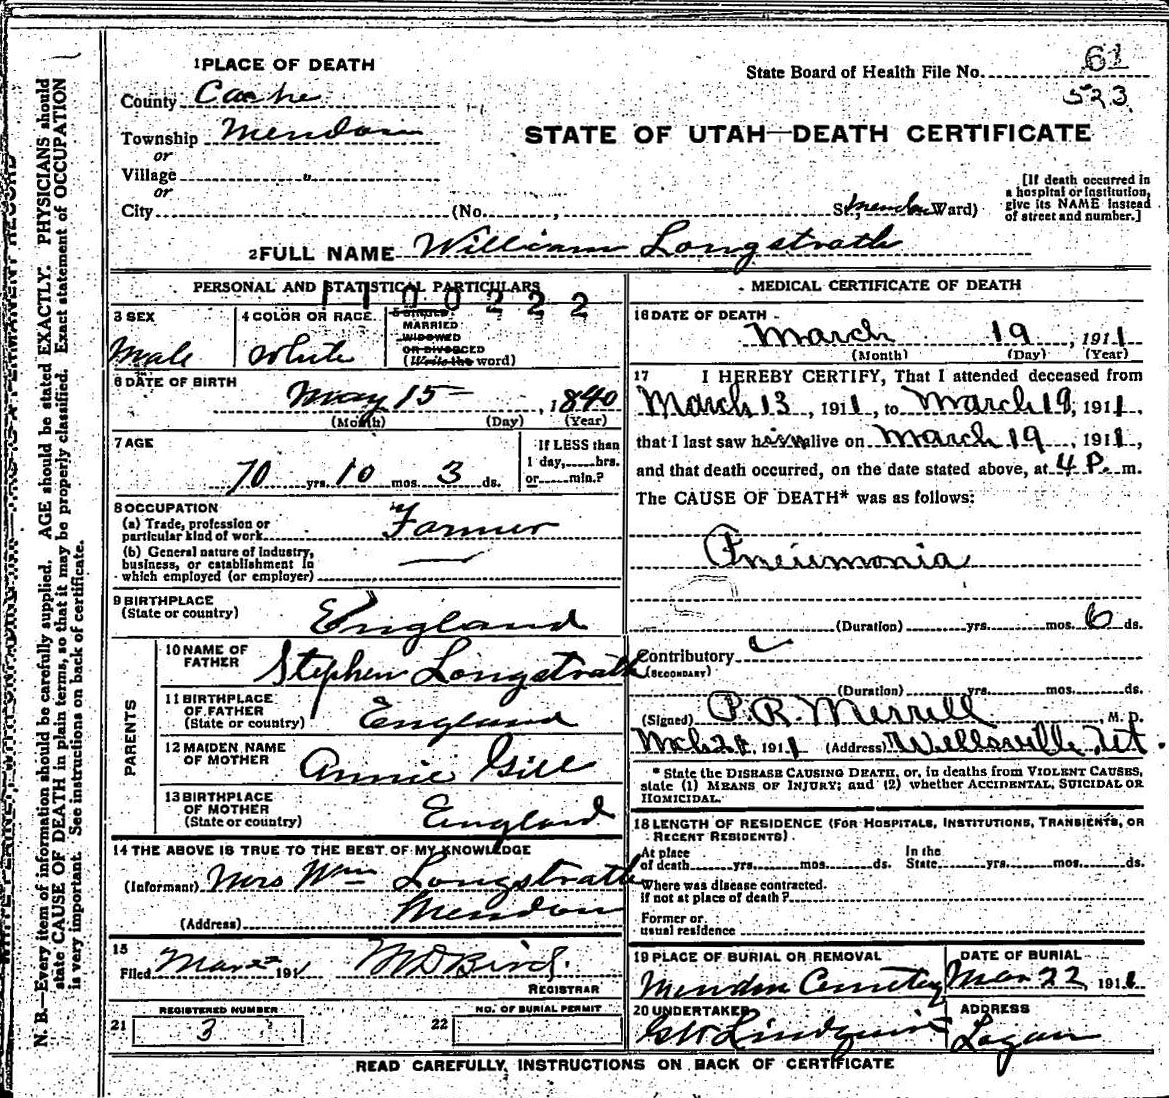 1 PLACE OF DEATH
State Board of Health File No. 61
523
County Cache
Township Mendon
or
Village "
or
City (No. , St; Mendon Ward)
STATE OF UTAH—DEATH CERTIFICATE
[If death occurred in
a hospital or institution,
give its NAME instead
of street and number.]
2 FULL NAME William Longstrath
PERSONAL AND STATISTICAL PARTICULARS
1100222
3 SEX
Male
4 COLOR OR RACE
White
5 SINGLE
MARRIED
WIDOWED
OR DIVORCED
(Write the word)
6 DATE OF BIRTH
May 15 , 1840
(Month) (Day) (Year)
7 AGE
70 yrs. 10 mos. 3 ds.
If LESS than
1 day, hrs.
or min.?
8 OCCUPATION
(a) Trade, profession or
particular kind of work Farmer
(b) General nature of industry,
business, or establishment in
which employed (or employer)
9 BIRTHPLACE
(State or country) England
PARENTS
10 NAME OF
FATHER Stephen Longstrath
11 BIRTHPLACE
OF FATHER
(State or country) England
12 MAIDEN NAME
OF MOTHER Annie Gill
13 BIRTHPLACE
OF MOTHER
(State or country) England
14 THE ABOVE IS TRUE TO THE BEST OF MY KNOWLEDGE
(Informant) Mrs Wm Longstrath
(Address) Mendon
15
Filed Mar 22 1911 M D Bird.
REGISTRAR
21 REGISTERED NUMBER
3
22 NO. OF BURIAL PERMIT
MEDICAL CERTIFICATE OF DEATH
16 DATE OF DEATH
March 19 , 1911
(Month) (Day) (Year)
17 I HEREBY CERTIFY, That I attended deceased from
March 13 , 1911, to March 19, 1911,
that I last saw him alive on March 19 , 1911,
and that death occurred, on the date stated above, at 4 P. m.
The CAUSE OF DEATH* was as follows:
Pneumonia
(Duration) yrs. mos. 6 ds.
Contributory
(SECONDARY)
(Duration) yrs. mos. ds.
(Signed) P. R. Merrill , M. D.
Mch 21, 1911 (Address) Wellsville, Ut.
* State the DISEASE CAUSING DEATH, or, in deaths from VIOLENT CAUSES,
state (1) MEANS OF INJURY; and (2) whether ACCIDENTAL, SUICIDAL OR
HOMICIDAL.
18 LENGTH OF RESIDENCE (FOR HOSPITALS, INSTITUTIONS, TRANSIENTS, OR
RECENT RESIDENTS)
At place of death yrs. mos. ds. In the State yrs. mos. ds.
Where was disease contracted.
if not at place of death?
Former or
usual residence
19 PLACE OF BURIAL OR REMOVAL
Mendon Cemetery
DATE OF BURIAL
Mar 22 1911
20 UNDERTAKER
G W Lindquist
ADDRESS
Logan
READ CAREFULLY, INSTRUCTIONS ON BACK OF CERTIFICATE
N. B.—Every item of information should be carefully supplied. AGE should be stated EXACTLY. PHYSICIANS should
state CAUSE OF DEATH in plain terms, so that it may be properly classified. Exact statement of OCCUPATION
is very important. See instructions on back of certificate.